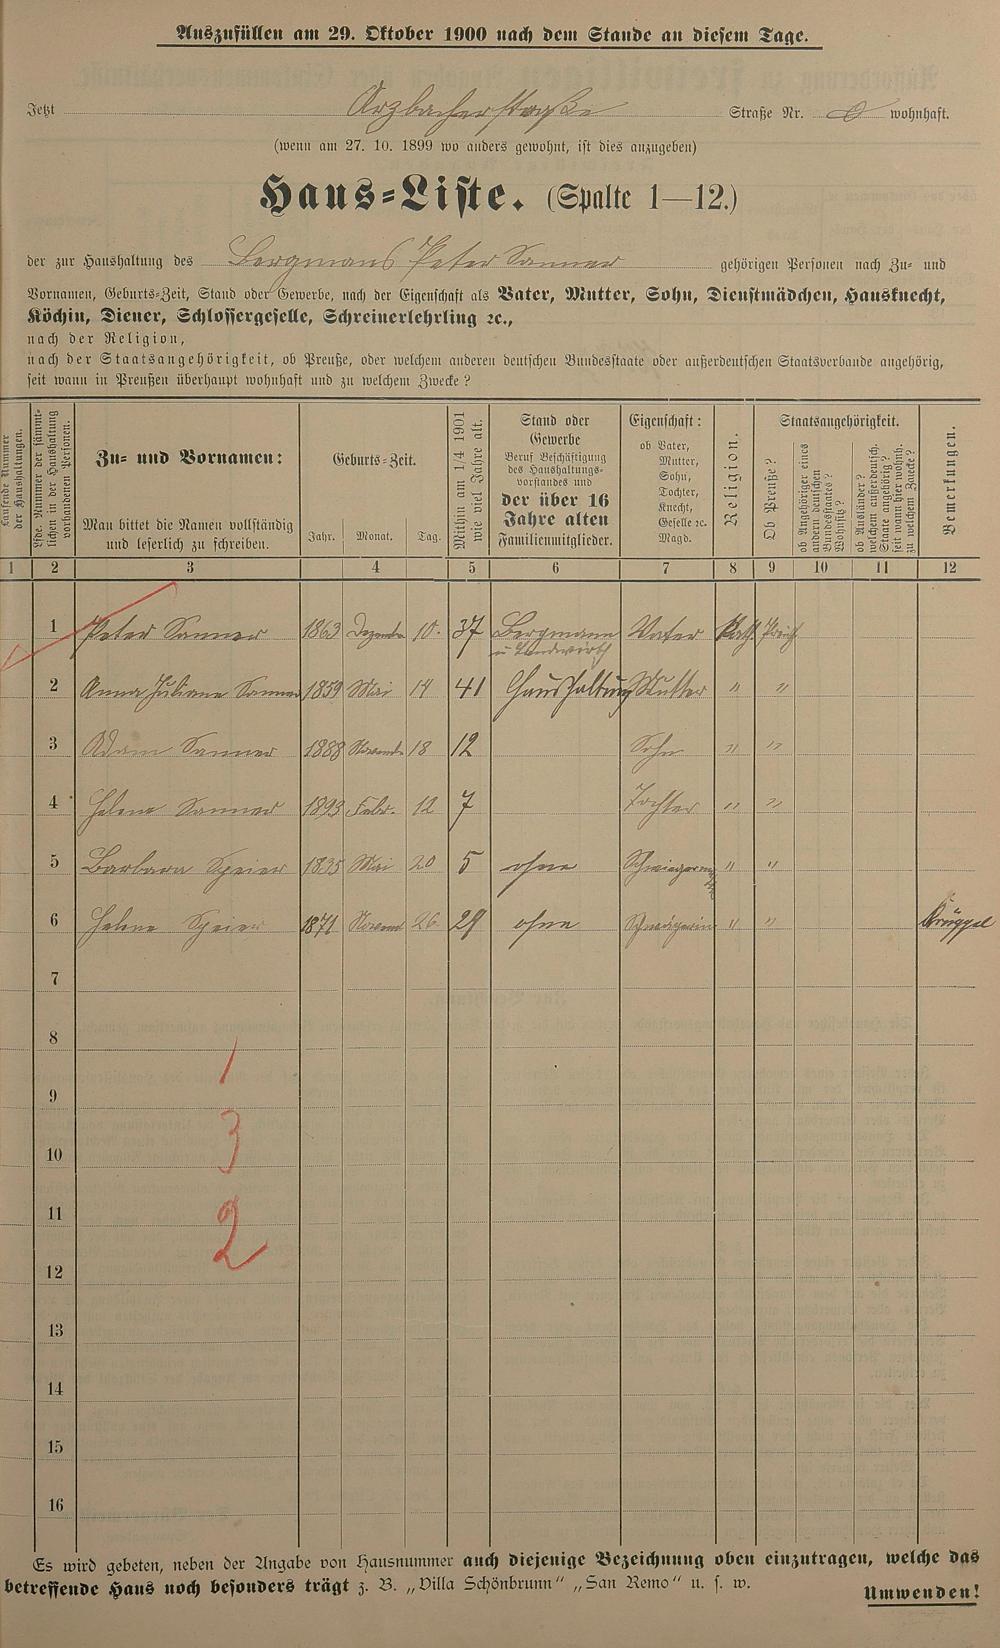 Auszufüllen am 29. Oktober 1900 nach dem Stande an diesem Tage.
Jetzt Arzbacherstraße Straße Nr. 0 wohnhaft.
(wenn am 27. 10. 1899 wo anders gewohnt, ist dies anzugeben)
Haus-Liste. (Spalte 1—12.)
der zur Haushaltung des Bergmans Peter Sanner gehörigen Personen nach Zu- und
Vornamen, Geburts-Zeit, Stand oder Gewerbe, nach der Eigenschaft als Vater, Mutter, Sohn, Dienstmädchen, Hausknecht,
Köchin, Diener, Schlossergeselle, Schreinerlehrling ꝛc.,
nach der Religion,
nach der Staatsangehörigkeit, ob Preuße, oder welchem anderen deutschen Bundesstaate oder außerdeutschen Staatsverbande angehörig,
seit wann in Preußen überhaupt wohnhaft und zu welchem Zwecke?
Laufende Nummer
der Haushaltungen.
Lfde. Nummer der sämmt-
lichen in der Haushaltung
vorhandenen Personen.
Zu- und Vornamen:
Man bittet die Namen vollständig
und leserlich zu schreiben.
Geburts-Zeit.
Jahr. Monat. Tag.
Mithin am 1/4 1901
wie viel Jahre alt.
Stand oder
Gewerbe
Beruf Beschäftigung
des Haushaltungs-
vorstandes und
der über 16
Jahre alten
Familienmitglieder.
Eigenschaft:
ob Vater,
Mutter,
Sohn,
Tochter,
Knecht,
Geselle ꝛc.
Magd.
Religion.
Staatsangehörigkeit.
Ob Preuße?
ob Angehöriger eines
andern deutschen
Bundesstaates?
Wohnsitz?
ob Ausländer?
welchem außerdeutsch.
Staate angehörig?
seit wann hier wohnh.
zu welchem Zwecke?
Bemerkungen.
1 2 3 4 5 6 7 8 9 10 11 12
1 Peter Sanner 1863 Dezember 10. 37 Bergmann Vater Kath. Preuß
u Landwirth
2 Anna Juliane Sanner 1859 Mai 14 41 Haushaltung Mutter " "
3 Adam Sanner 1888 Novemb 18 12 Sohn " "
4 Helene Sanner 1893 Febr. 12 7 Tochter " "
5 Barbara Speier 1835 Mai 20 5 ohne " "
6 Helene Speier 1871 Novemb 26 29 ohne Schwägerin " " Krüppel
7
8
1
9
3
10
11
2
12
13
14
15
16
Es wird gebeten, neben der Angabe von Hausnummer auch diejenige Bezeichnung oben einzutragen, welche das
betreffende Haus noch besonders trägt z. B. „Villa Schönbrunn“ „San Remo“ u. s. w.
Umwenden!